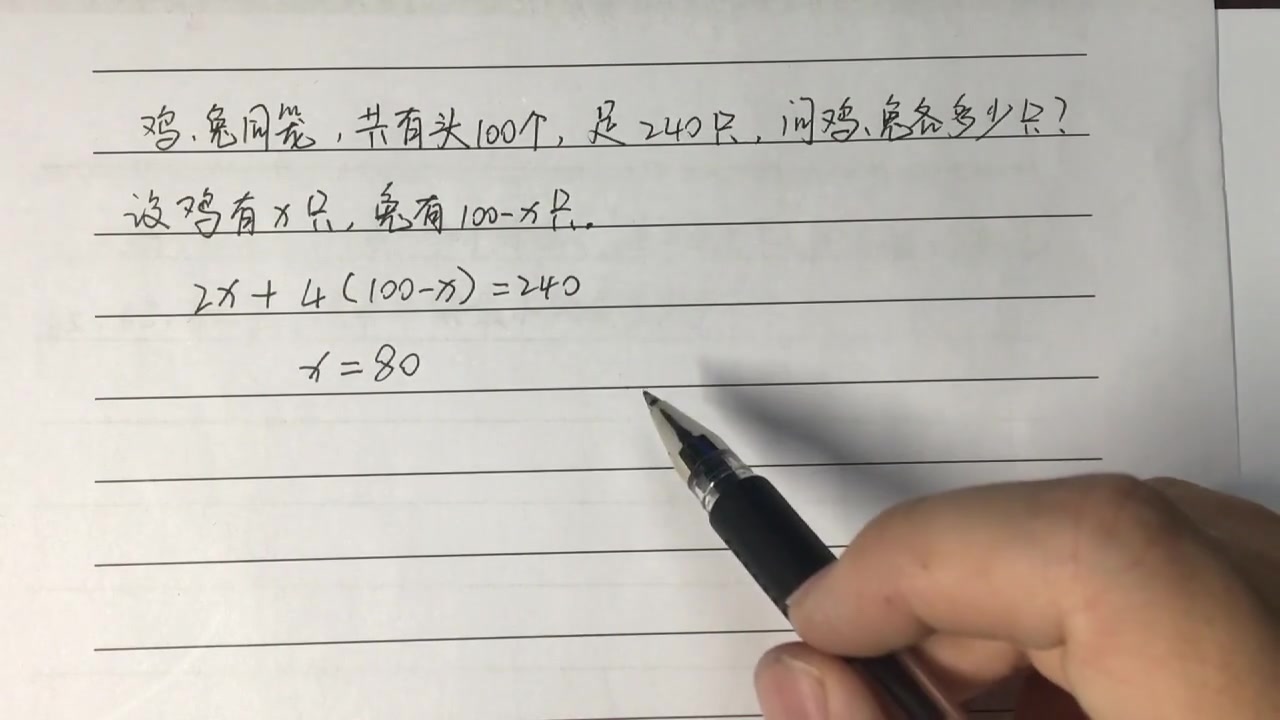 鸡、兔同笼，共有头100个，足240只，问鸡、兔各多少只？
设鸡有x只，兔有100-x只。
2x+4(100-x)=240
x=80